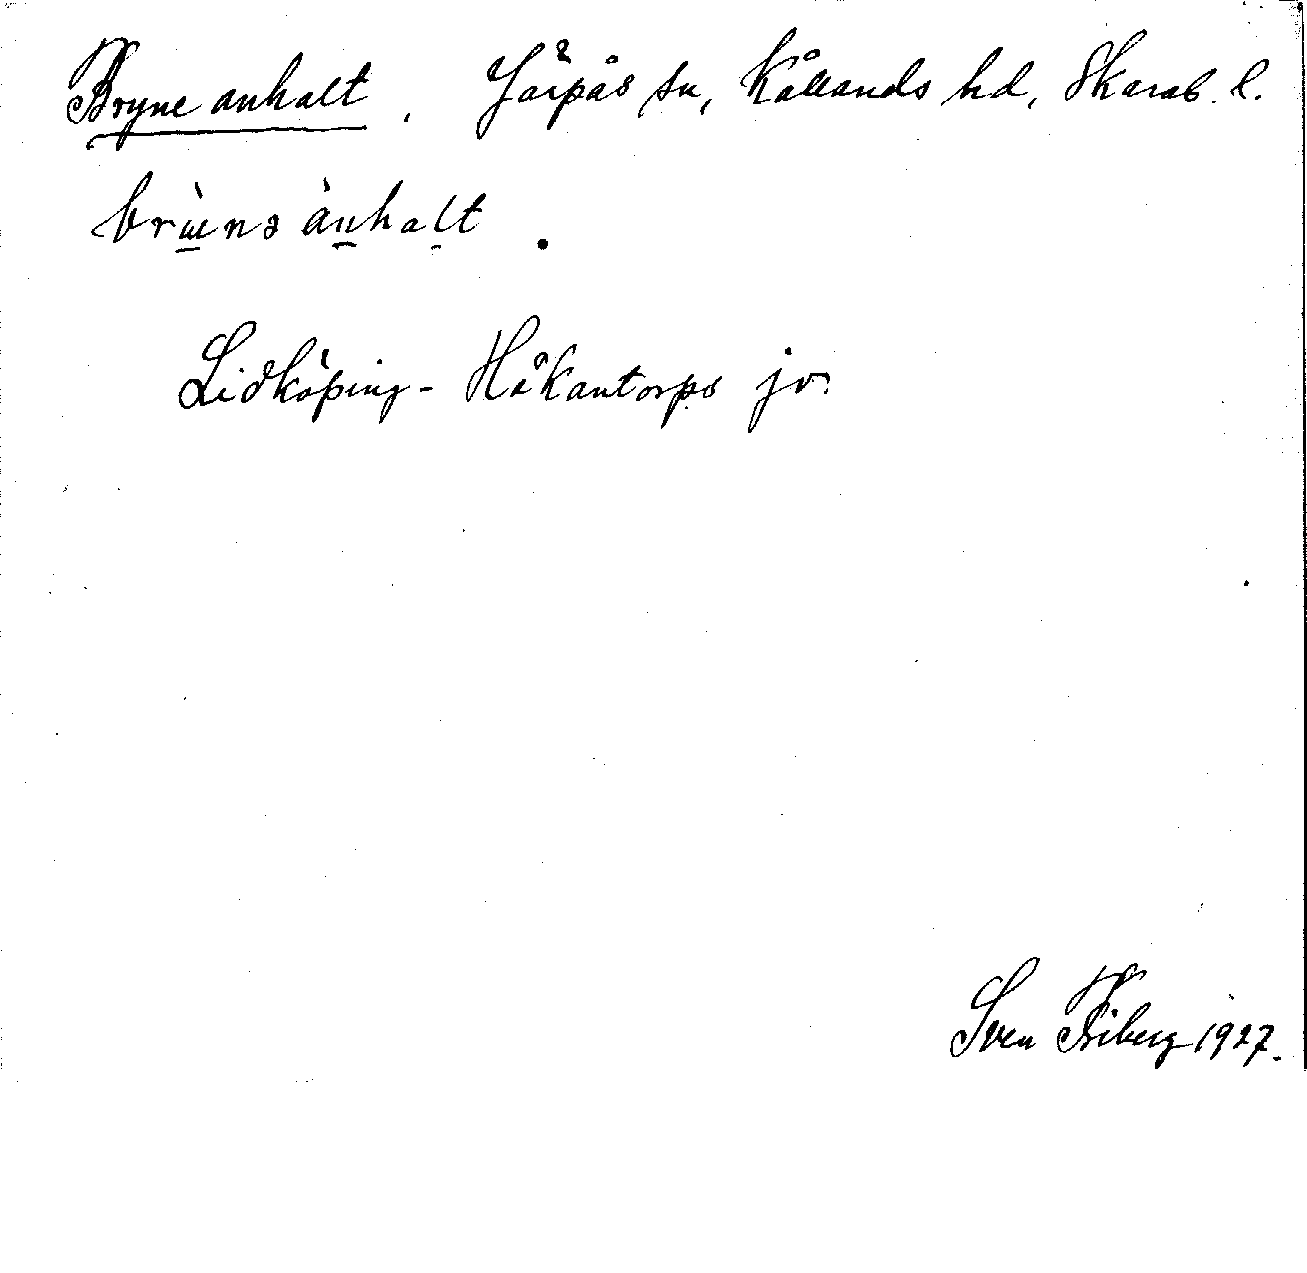 Bryne anhalt, Järpås sn, Kållands hd, Skarab. l.
brùna ànhalt.
Lidköping-Håkantorps jv.
Sven Friberg 1927.